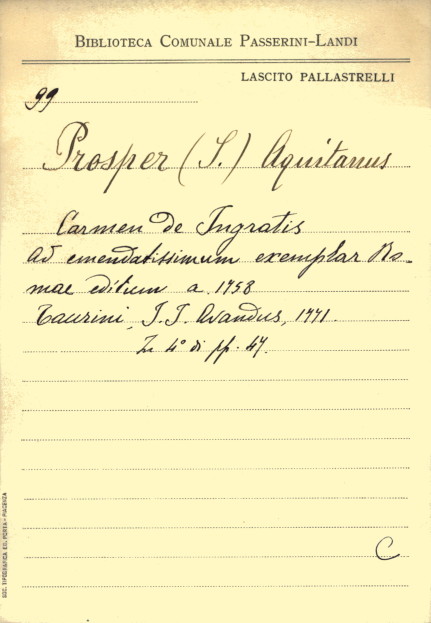 BIBLIOTECA COMUNALE PASSERINI-LANDI
LASCITO PALLASTRELLI
99
Prosper (S.) Aquitanus
Carmen de Ingratis
ad emendatissimum exemplar Ro-
mae editum a. 1758
Taurini, J. J. Avandus, 1771.
In 4° di pp. 47.
C
SOC. TIPOGRAFICA ED. PORTA - PIACENZA